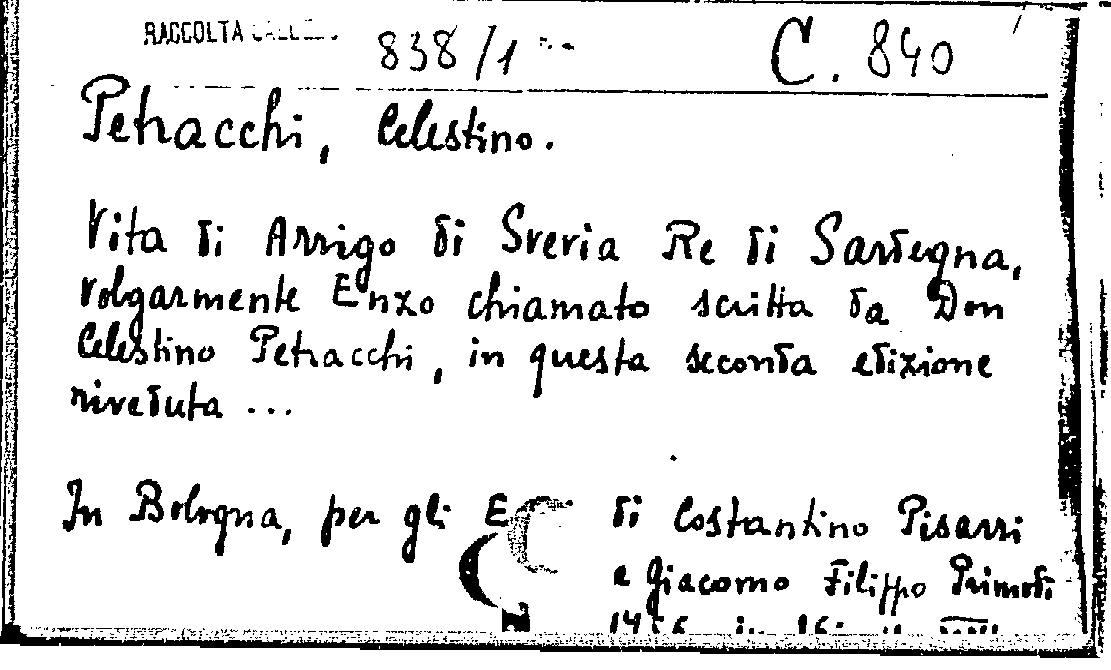 RACCOLTA
838/1
C. 840
Petracchi, Celestino.
Vita di Arrigo di Svevia Re di Sardegna,
volgarmente Enzo chiamato scritta da Don
Celestino Petracchi, in questa seconda edizione
riveduta ...
In Bologna, per gli E di Costantino Pisarri
e Giacomo Filippo Primodì
in